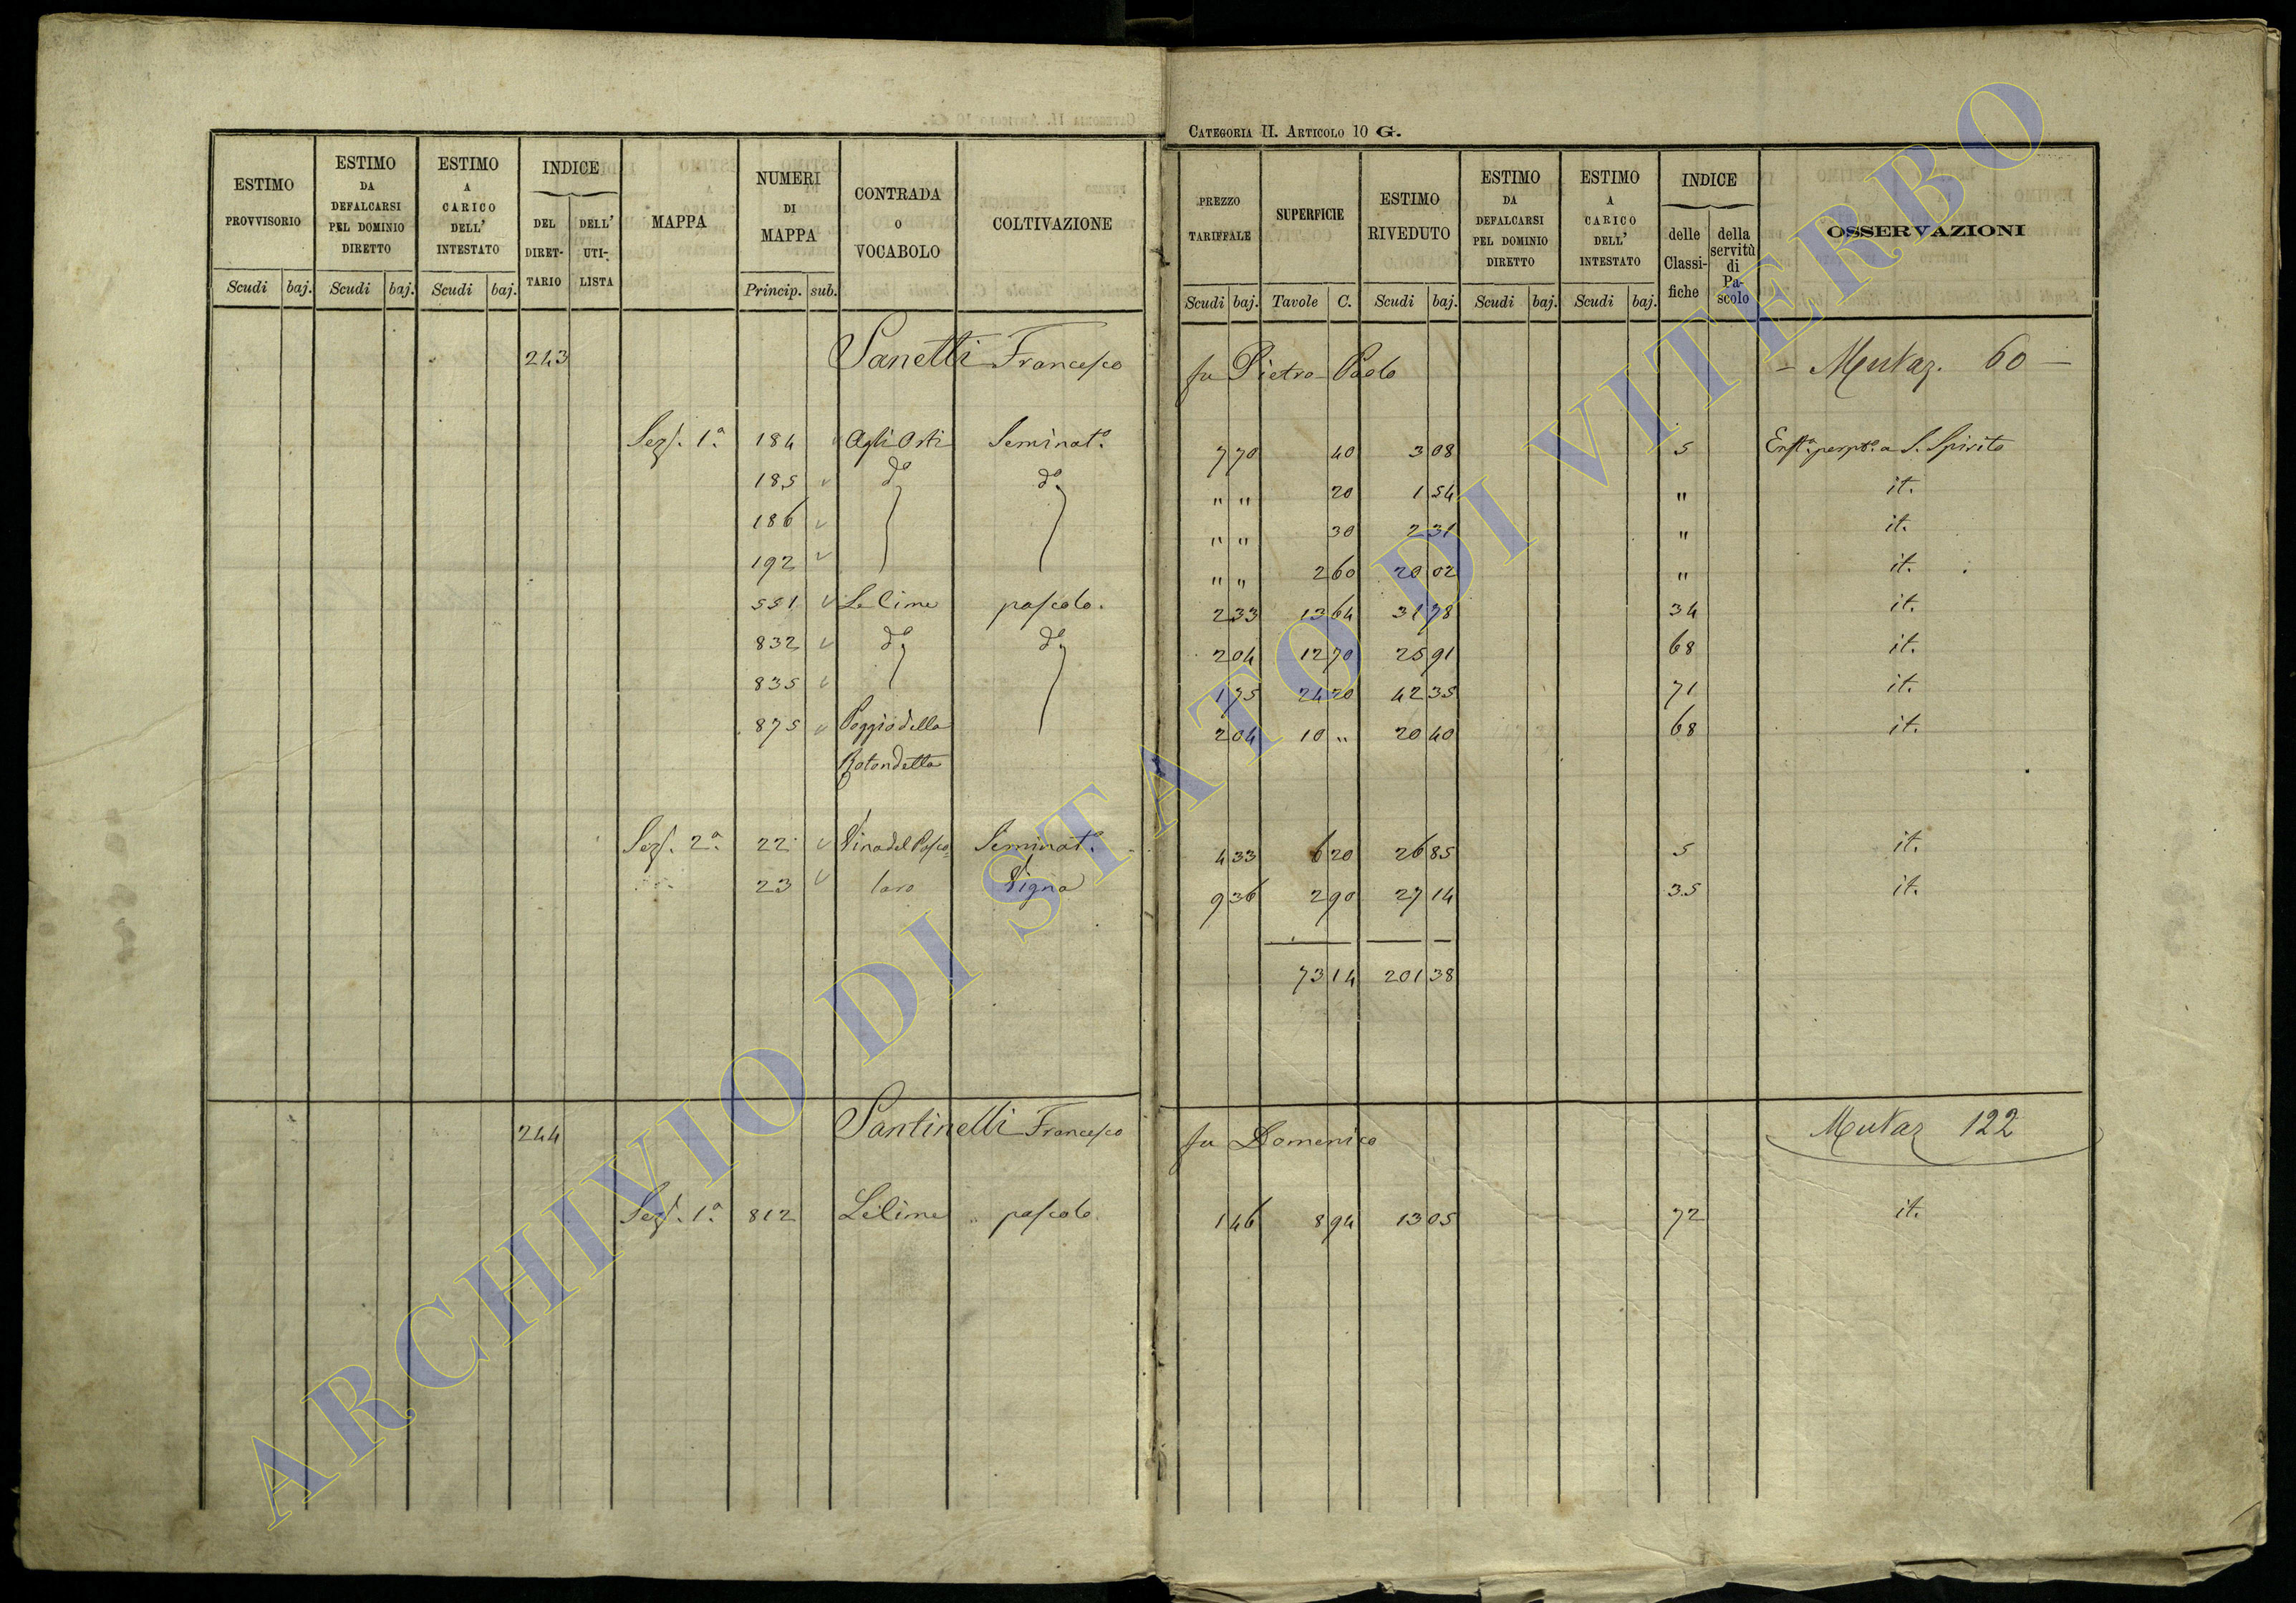 CATEGORIA II. ARTICOLO 10 G.
ESTIMO PROVVISORIO Scudi baj.
ESTIMO DA DEFALCARSI PEL DOMINIO DIRETTO Scudi baj.
ESTIMO A CARICO DELL' INTESTATO Scudi baj.
INDICE DEL DIRET- TARIO DELL' UTI- LISTA
MAPPA
NUMERI DI MAPPA Princip. sub.
CONTRADA O VOCABOLO
COLTIVAZIONE
PREZZO TARIFFALE Scudi baj.
SUPERFICIE Tavole C.
ESTIMO RIVEDUTO Scudi baj.
ESTIMO DA DEFALCARSI PEL DOMINIO DIRETTO Scudi baj.
ESTIMO A CARICO DELL' INTESTATO Scudi baj.
INDICE delle Classi- fiche della servitù di Pa- scolo
OSSERVAZIONI
243 Sanetti Francesco fu Pietro Paolo - Mutaz. 60 -
Sez. 1ª 184 Agli Orti Seminatº 7 70 40 3 08 5 Enftª perptª a S. Spirito
185 dº dº " " 20 1 54 " it.
186 " " 30 2 31 " it.
192 " " 2 60 20 02 " it.
551 Le Cime pascolo. 2 33 13 64 31 78 34 it.
832 dº dº 2 04 12 70 25 91 68 it.
835 1 75 24 20 42 35 71 it.
875 Poggio della 2 04 10 " 20 40 68 it.
Rotondetta
Sez. 2ª 22 Seminatº 4 33 6 20 26 85 5 it.
23 Vigna 9 36 2 90 27 14 35 it.
73 14 201 38
244 Santinelli Francesco fu Domenico Mutaz 122
Sez. 1ª 812 Le Cime pascolo. 1 46 8 94 13 05 72 it.
ARCHIVIO DI STATO DI VITERBO